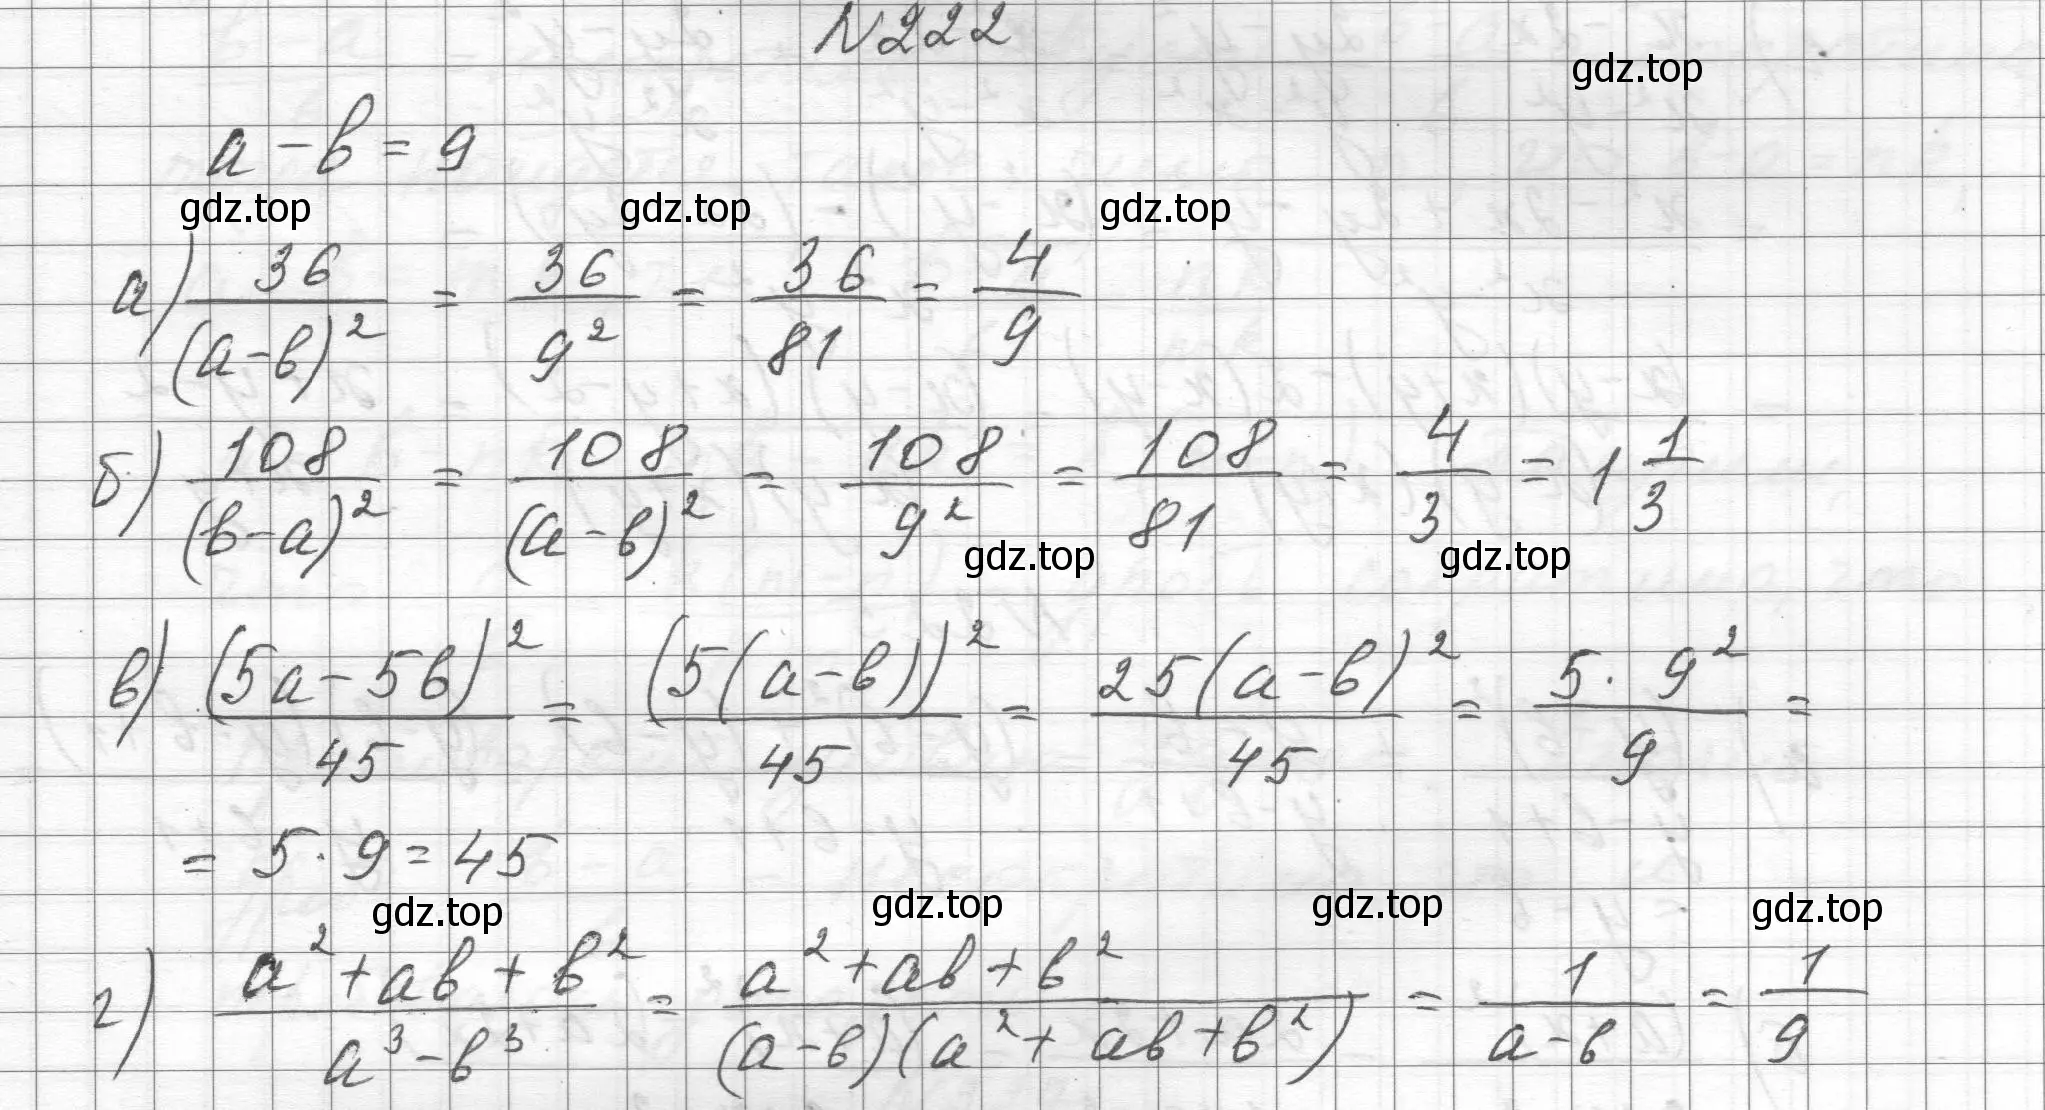 N222
gdz.top
a - b = 9
gdz.top gdz.top gdz.top
а) 36/(a-b)² = 36/9² = 36/81 = 4/9
б) 108/(b-a)² = 108/(a-b)² = 108/9² = 108/81 = 4/3 = 1 1/3
gdz.top gdz.top
в) (5a-5b)²/45 = (5(a-b))²/45 = 25(a-b)²/45 = 5·9²/9 =
= 5·9 = 45
gdz.top gdz.top gdz.top gdz.top
г) a²+ab+b²/a³-b³ = a²+ab+b²/(a-b)(a²+ab+b²) = 1/a-b = 1/9